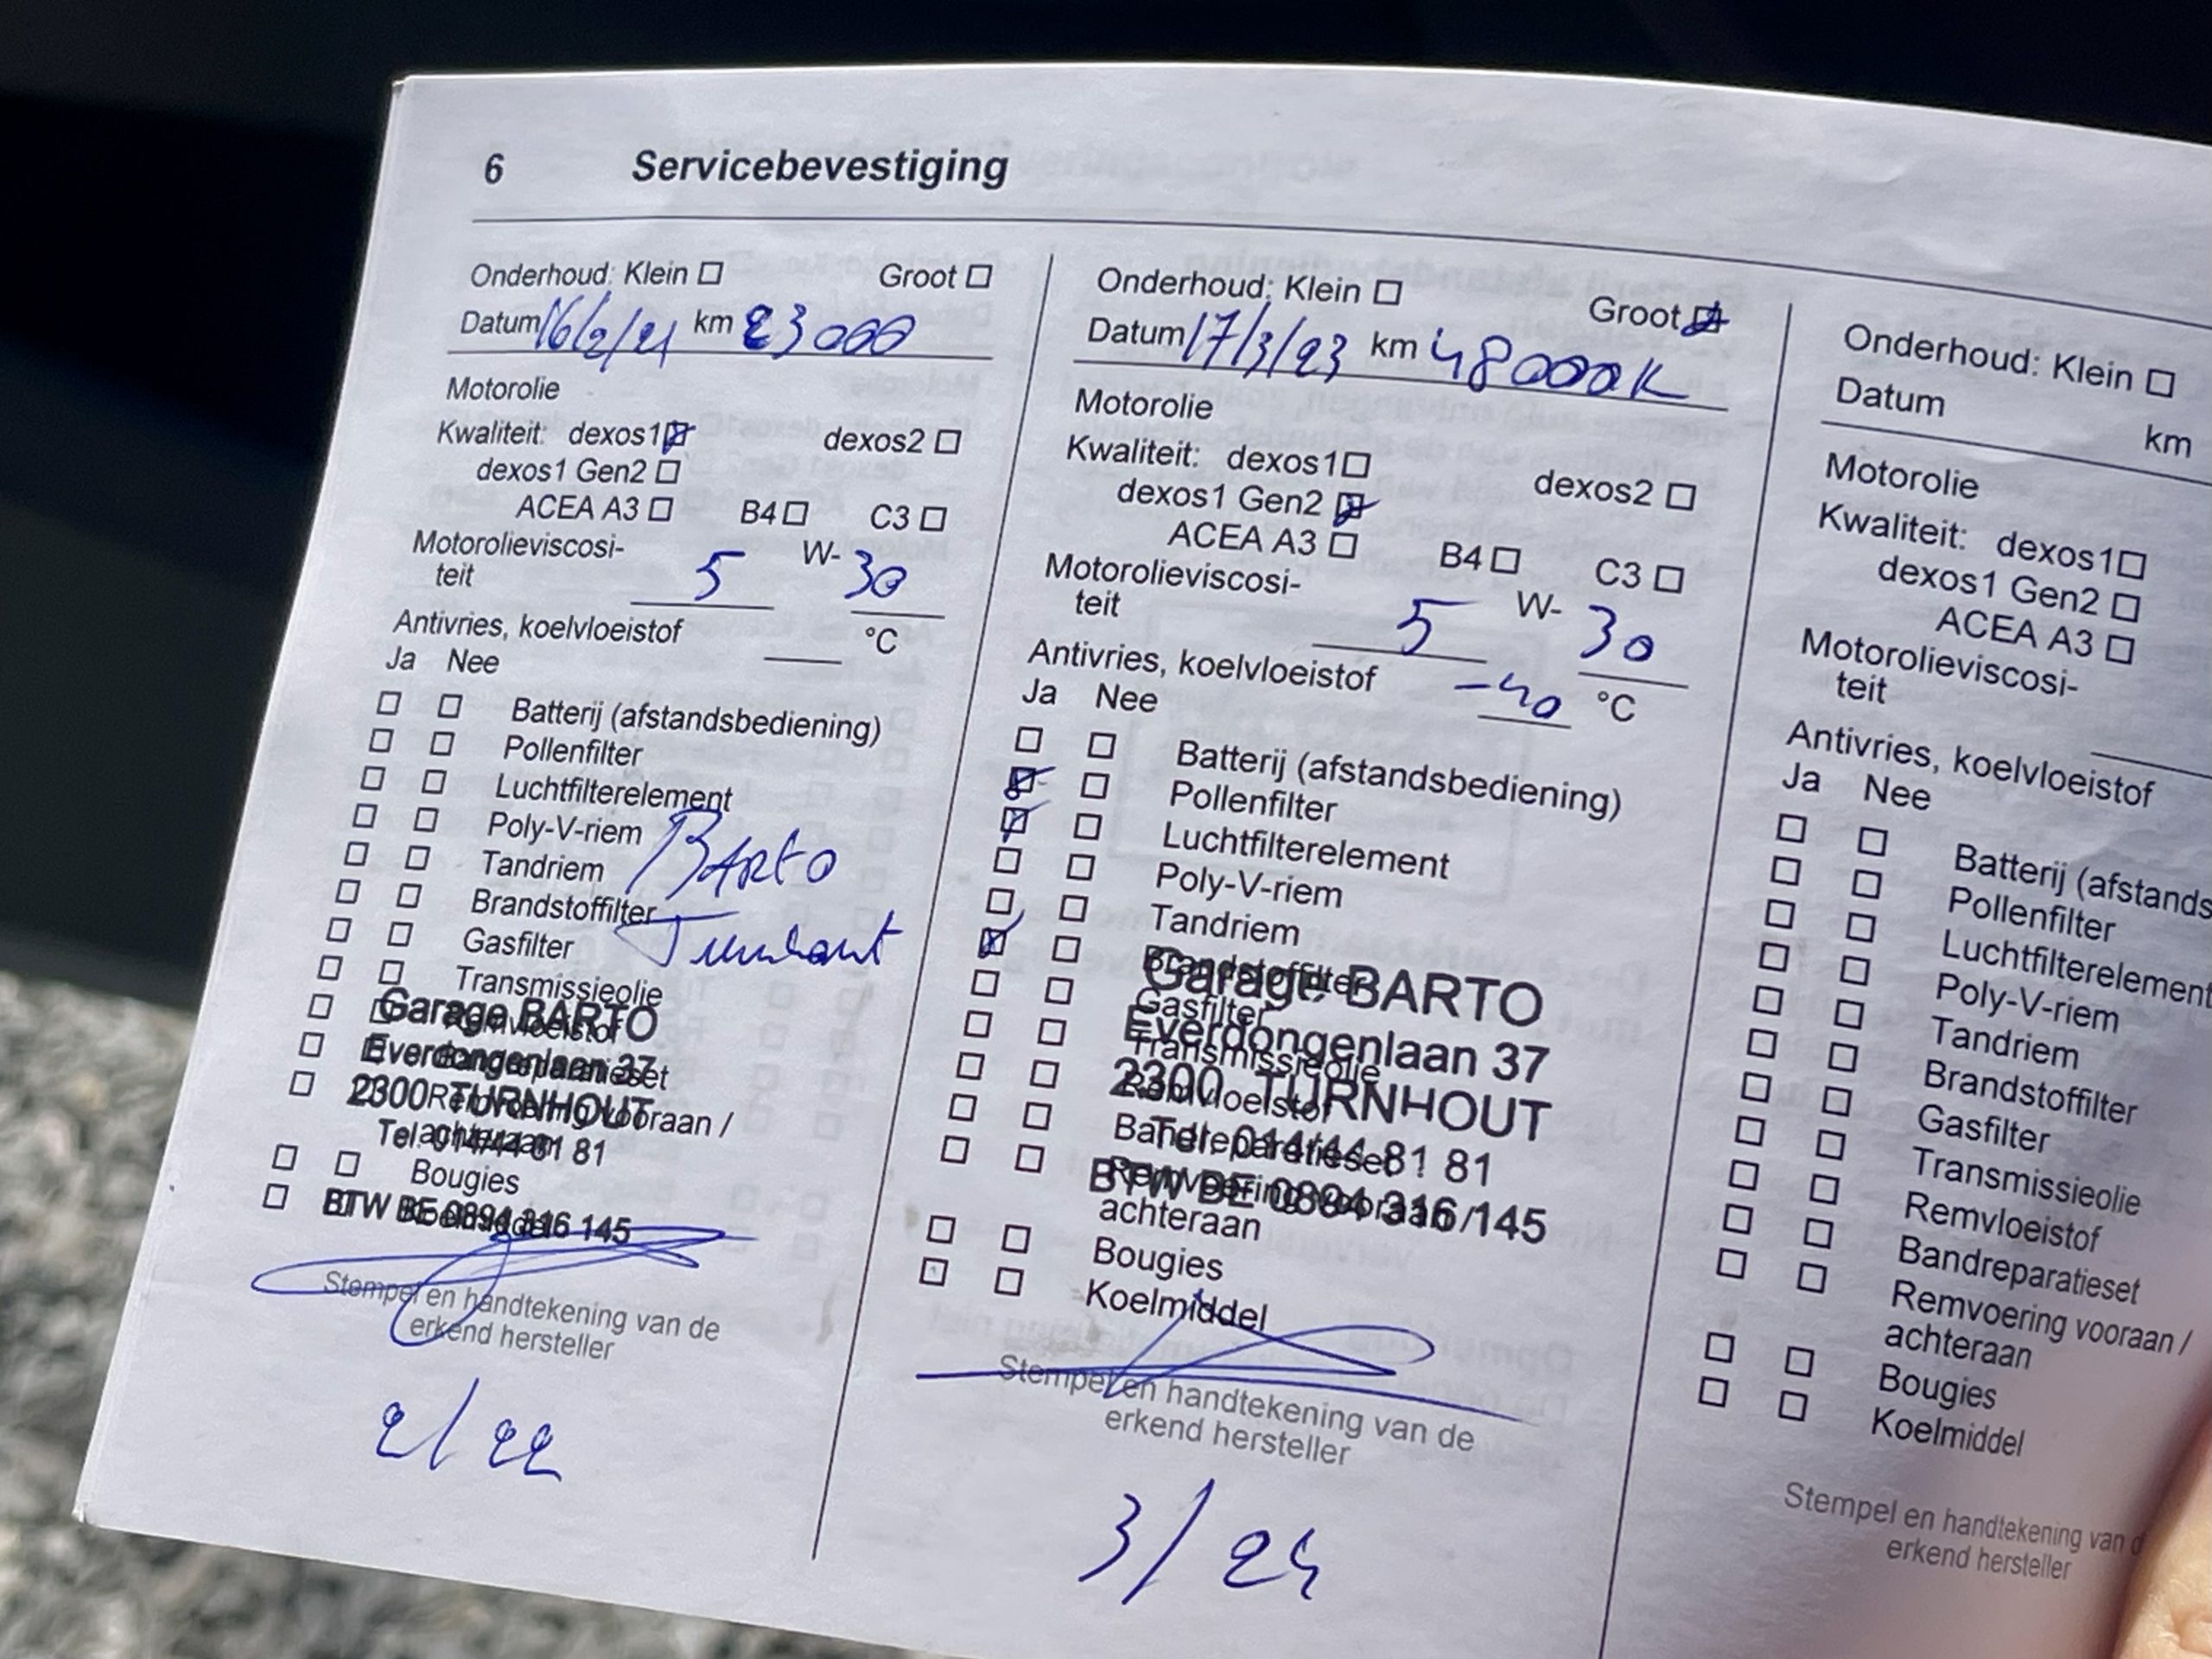 6 Servicebevestiging
Onderhoud: Klein Groot
Datum 16/2/21 km 23000
Motorolie
Kwaliteit: dexos1 dexos2
dexos1 Gen2
ACEA A3 B4 C3
Motorolieviscosi-
teit 5 W- 30
Antivries, koelvloeistof °C
Ja Nee
Batterij (afstandsbediening)
Pollenfilter
Luchtfilterelement
Poly-V-riem
Tandriem
BARTO
Brandstoffilter
Turnhout
Gasfilter
Transmissieolie
Remvloeistof
Garage BARTO
Bandreparatieset
Everdongenlaan 37
Remvoering vooraan /
2300 TURNHOUT
achteraan
Tel. 014/44 81 81
Bougies
Koelmiddel
BTW BE 0894 316 145
Stempel en handtekening van de
erkend hersteller
2/22
Onderhoud: Klein Groot
Datum 17/3/23 km 48000K
Motorolie
Kwaliteit: dexos1 dexos2
dexos1 Gen2
ACEA A3 B4 C3
Motorolieviscosi-
teit 5 W- 30
Antivries, koelvloeistof -40 °C
Ja Nee
Batterij (afstandsbediening)
Pollenfilter
Luchtfilterelement
Poly-V-riem
Tandriem
Brandstoffilter
Garage BARTO
Gasfilter
Everdongenlaan 37
Transmissieolie
2300 TURNHOUT
Remvloeistof
Bandreparatieset
Tel. 014/44 81 81
Remvoering vooraan /
BTW BE 0894 316 145
achteraan
Bougies
Koelmiddel
Stempel en handtekening van de
erkend hersteller
3/24
Onderhoud: Klein
Datum km
Motorolie
Kwaliteit: dexos1
dexos1 Gen2
ACEA A3
Motorolieviscosi-
teit
Antivries, koelvloeistof
Ja Nee
Batterij (afstands
Pollenfilter
Luchtfilterelement
Poly-V-riem
Tandriem
Brandstoffilter
Gasfilter
Transmissieolie
Remvloeistof
Bandreparatieset
Remvoering vooraan /
achteraan
Bougies
Koelmiddel
Stempel en handtekening van d
erkend hersteller